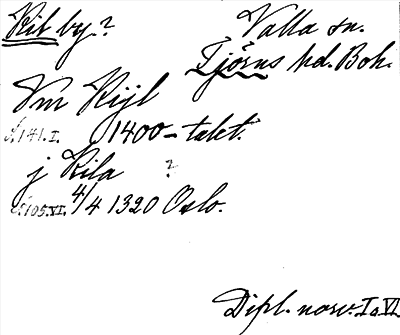 Kil by? Valla sn.
Tjörns hd. Boh.
Vm Kijl
s. 141. I. 1400-talet.
j Kila ?
s. 105. VI. 4/4 1320 Oslo.
Dipl. norv. I o. VI.